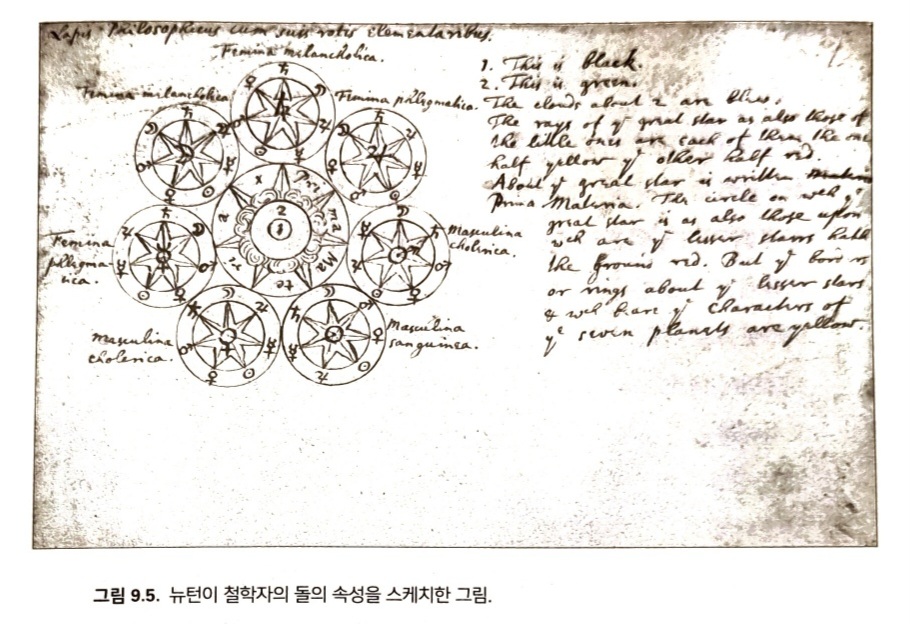 Lapis Philosophicus cum suis rotis elementaribus.
Femina melancholica.
Femina melancholica
Femina phlegmatica.
Femina
phlegma-
tica.
Masculina
cholerica.
masculina
cholerica.
Masculina
sanguinea.
Pri ma Ma te ri a
2
1
1. This is black.
2. This is green.
The clouds about 2 are blew.
The rays of yᵉ great star as also those of
the little ones are each of them the one
half yellow yᵉ other half red.
About yᵉ great star is written
Prima Materia. The circle on wᶜʰ yᵉ
great star is as also those upon
wᶜʰ are yᵉ lesser starrs hath
the ground red. But yᵉ borders
or rings about yᵉ lesser stars
& wᶜʰ beare yᵉ characters of
yᵉ seven planets are yellow.
그림 9.5. 뉴턴이 철학자의 돌의 속성을 스케치한 그림.